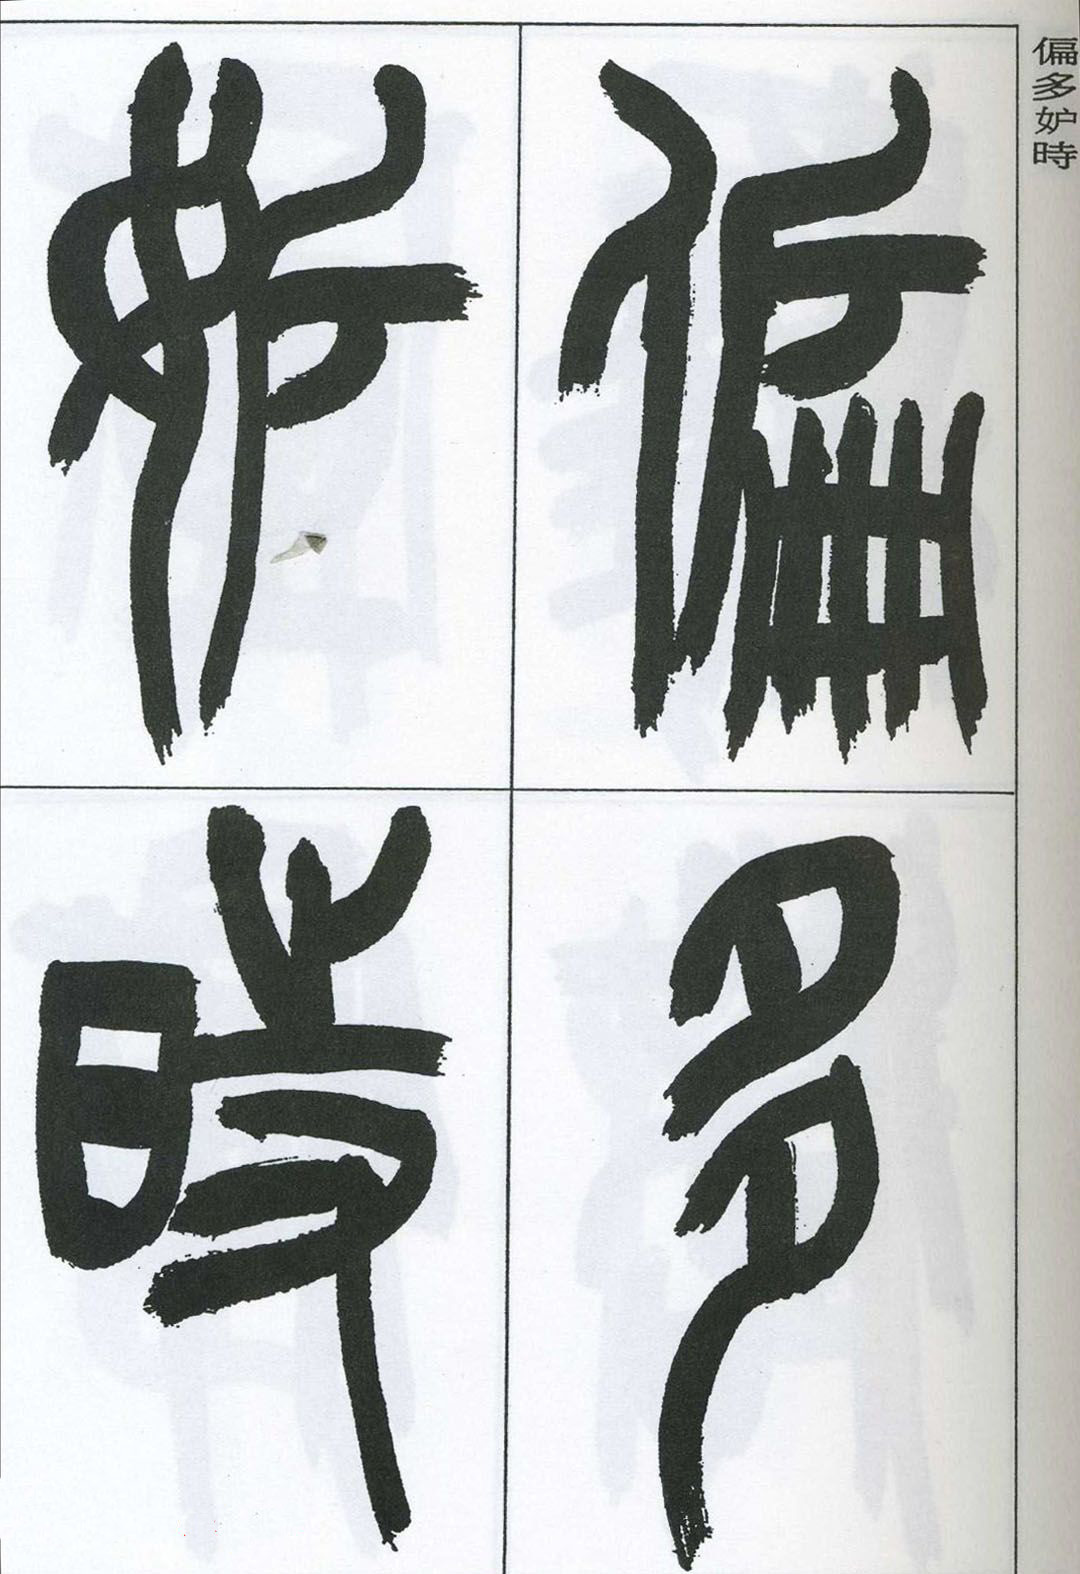 偏多妒時
偏多
妒時